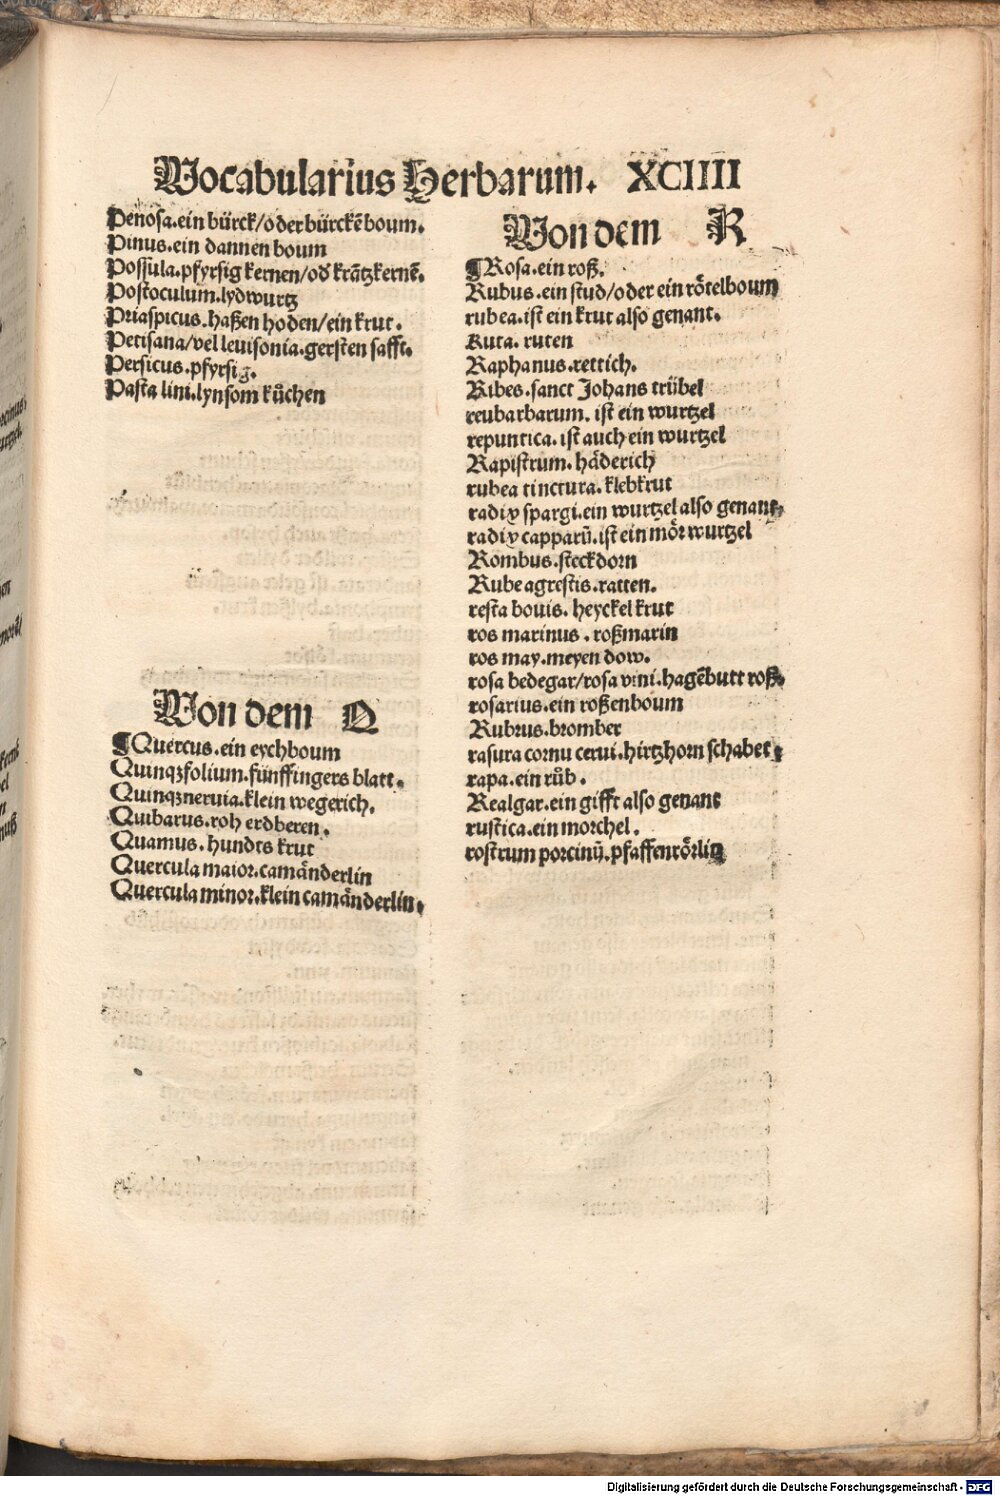 Vocabularius Herbarum. XCIIII
Penosa.ein bürck/oder bürckē boum.
Pinus.ein dannen boum
Possula.pfyrsig kernen/od krātzkernē.
Postoculum.lydwurtz
Priaspicus.haßen hoden/ein krut.
Petisana/vel leuisonia.gersten safft.
Persicus.pfyrsig.
Pasta lini.lynsom kůchen
Von dem Q
¶Quercus.ein eychboum
Quinqꝫfolium.fünffingers blatt.
Quinqꝫneruia.klein wegerich.
Quibarus.roh erdberen.
Quamus.hundts krut
Quercula maior.camänderlin
Quercula minor.klein camänderlin.
Von dem R
¶Rosa.ein roß.
Rubus.ein stud/oder ein rötelboum
rubea.ist ein krut also genant.
Ruta. ruten
Raphanus.rettich.
Ribes.sanct Johans trübel
reubarbarum. ist ein wurtzel
repuntica. ist auch ein wurtzel
Rapistrum. häderich
rubea tinctura.klebkrut
radix spargi.ein wurtzel also genant.
radix capparū.ist ein mör wurtzel
Rombus.steckdorn
Rube agrestis.ratten.
resta bouis. heyckel krut
ros marinus . roßmarin
ros may.meyen dow.
rosa bedegar/rosa vini.hagēbutt roß.
rosarius.ein roßenboum
Rubrus.bromber
rasura cornu cerui.hirtzhorn schabet.
rapa.ein růb.
Realgar.ein gifft also genant
rustica.ein morchel.
rostrum porcinū.pfaffenrörlin
Digitalisierung gefördert durch die Deutsche Forschungsgemeinschaft - DFG